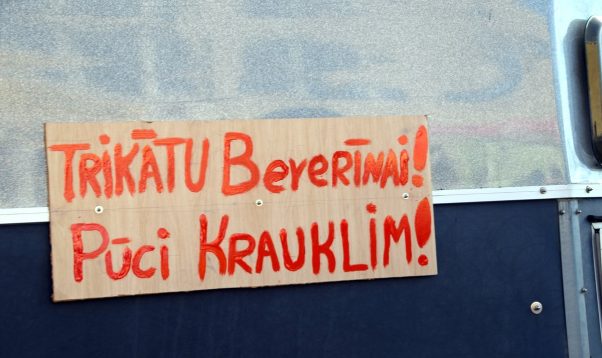 TRIKĀTU BEVERĪNAI!
PŪCI KRAUKLIM!